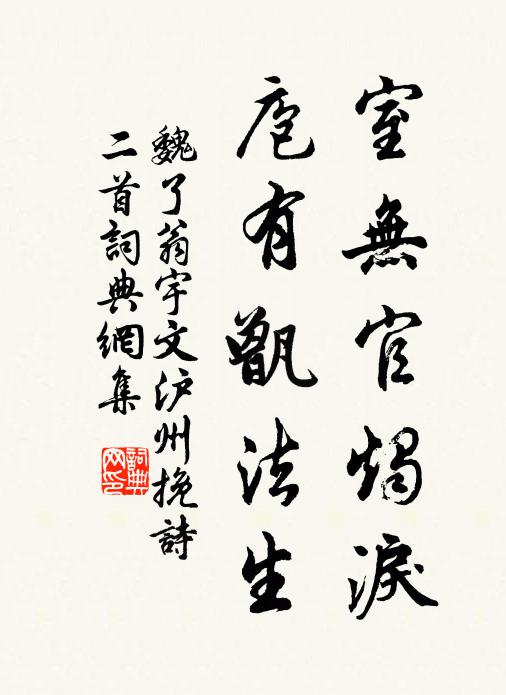 室無官燭淚
庖有甑法生
魏了翁宇文泸州挽詩
二首詞典網集
詞典网印